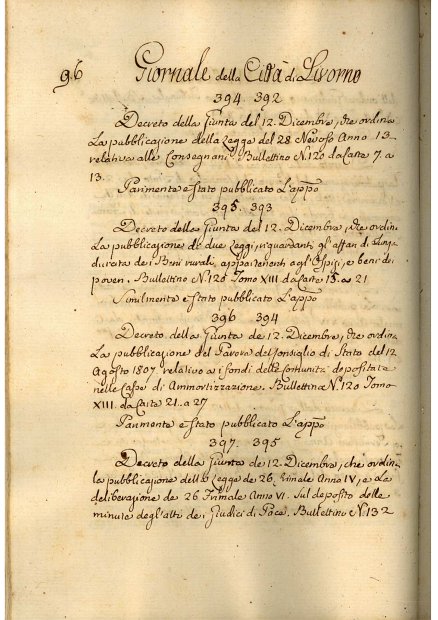 96 Giornale della Città di Livorno
394 392
Decreto della Giunta del 12. Dicembre, che ordina
La pubblicazione della Legge del 28 Nevoso Anno 13.
relativa alle Consegnani. Bullettino N. 120 da Carte 7. a
13.
Parimente e stato pubblicato L'appo
395. 393
Decreto della Giunta del 12. Dicembre, che ordin
La pubblicazione di due Leggi, riguardanti gl'affari di Lunga
durata dei Beni rurali appartenenti agl'Ospizi, e beni dei
poveri. Bullettino N. 120 Tomo XIII da Carte 13. a 21
Similmente e stato pubblicato L'appo
396 394
Decreto della Giunta de 12. Dicembre, che ordin
La pubblicazione del Parere del Consiglio di Stato del 12
Agosto 1807 relativo a i fondi delle Comunità depositate
nelle Casse di Ammortizzazione. Bullettino N. 120 Tomo
XIII. da Carte 21. a 27
Parimente e stato pubblicato L'appo
397. 395
Decreto della Giunta de 12. Dicembre, che ordin
la pubblicazione della Legge de 26. Frimale Anno IV, e La
deliberazione de 26 Frimale Anno VI. Sul deposito delle
minute degl'atti de i Giudici di Pace. Bullettino N. 132